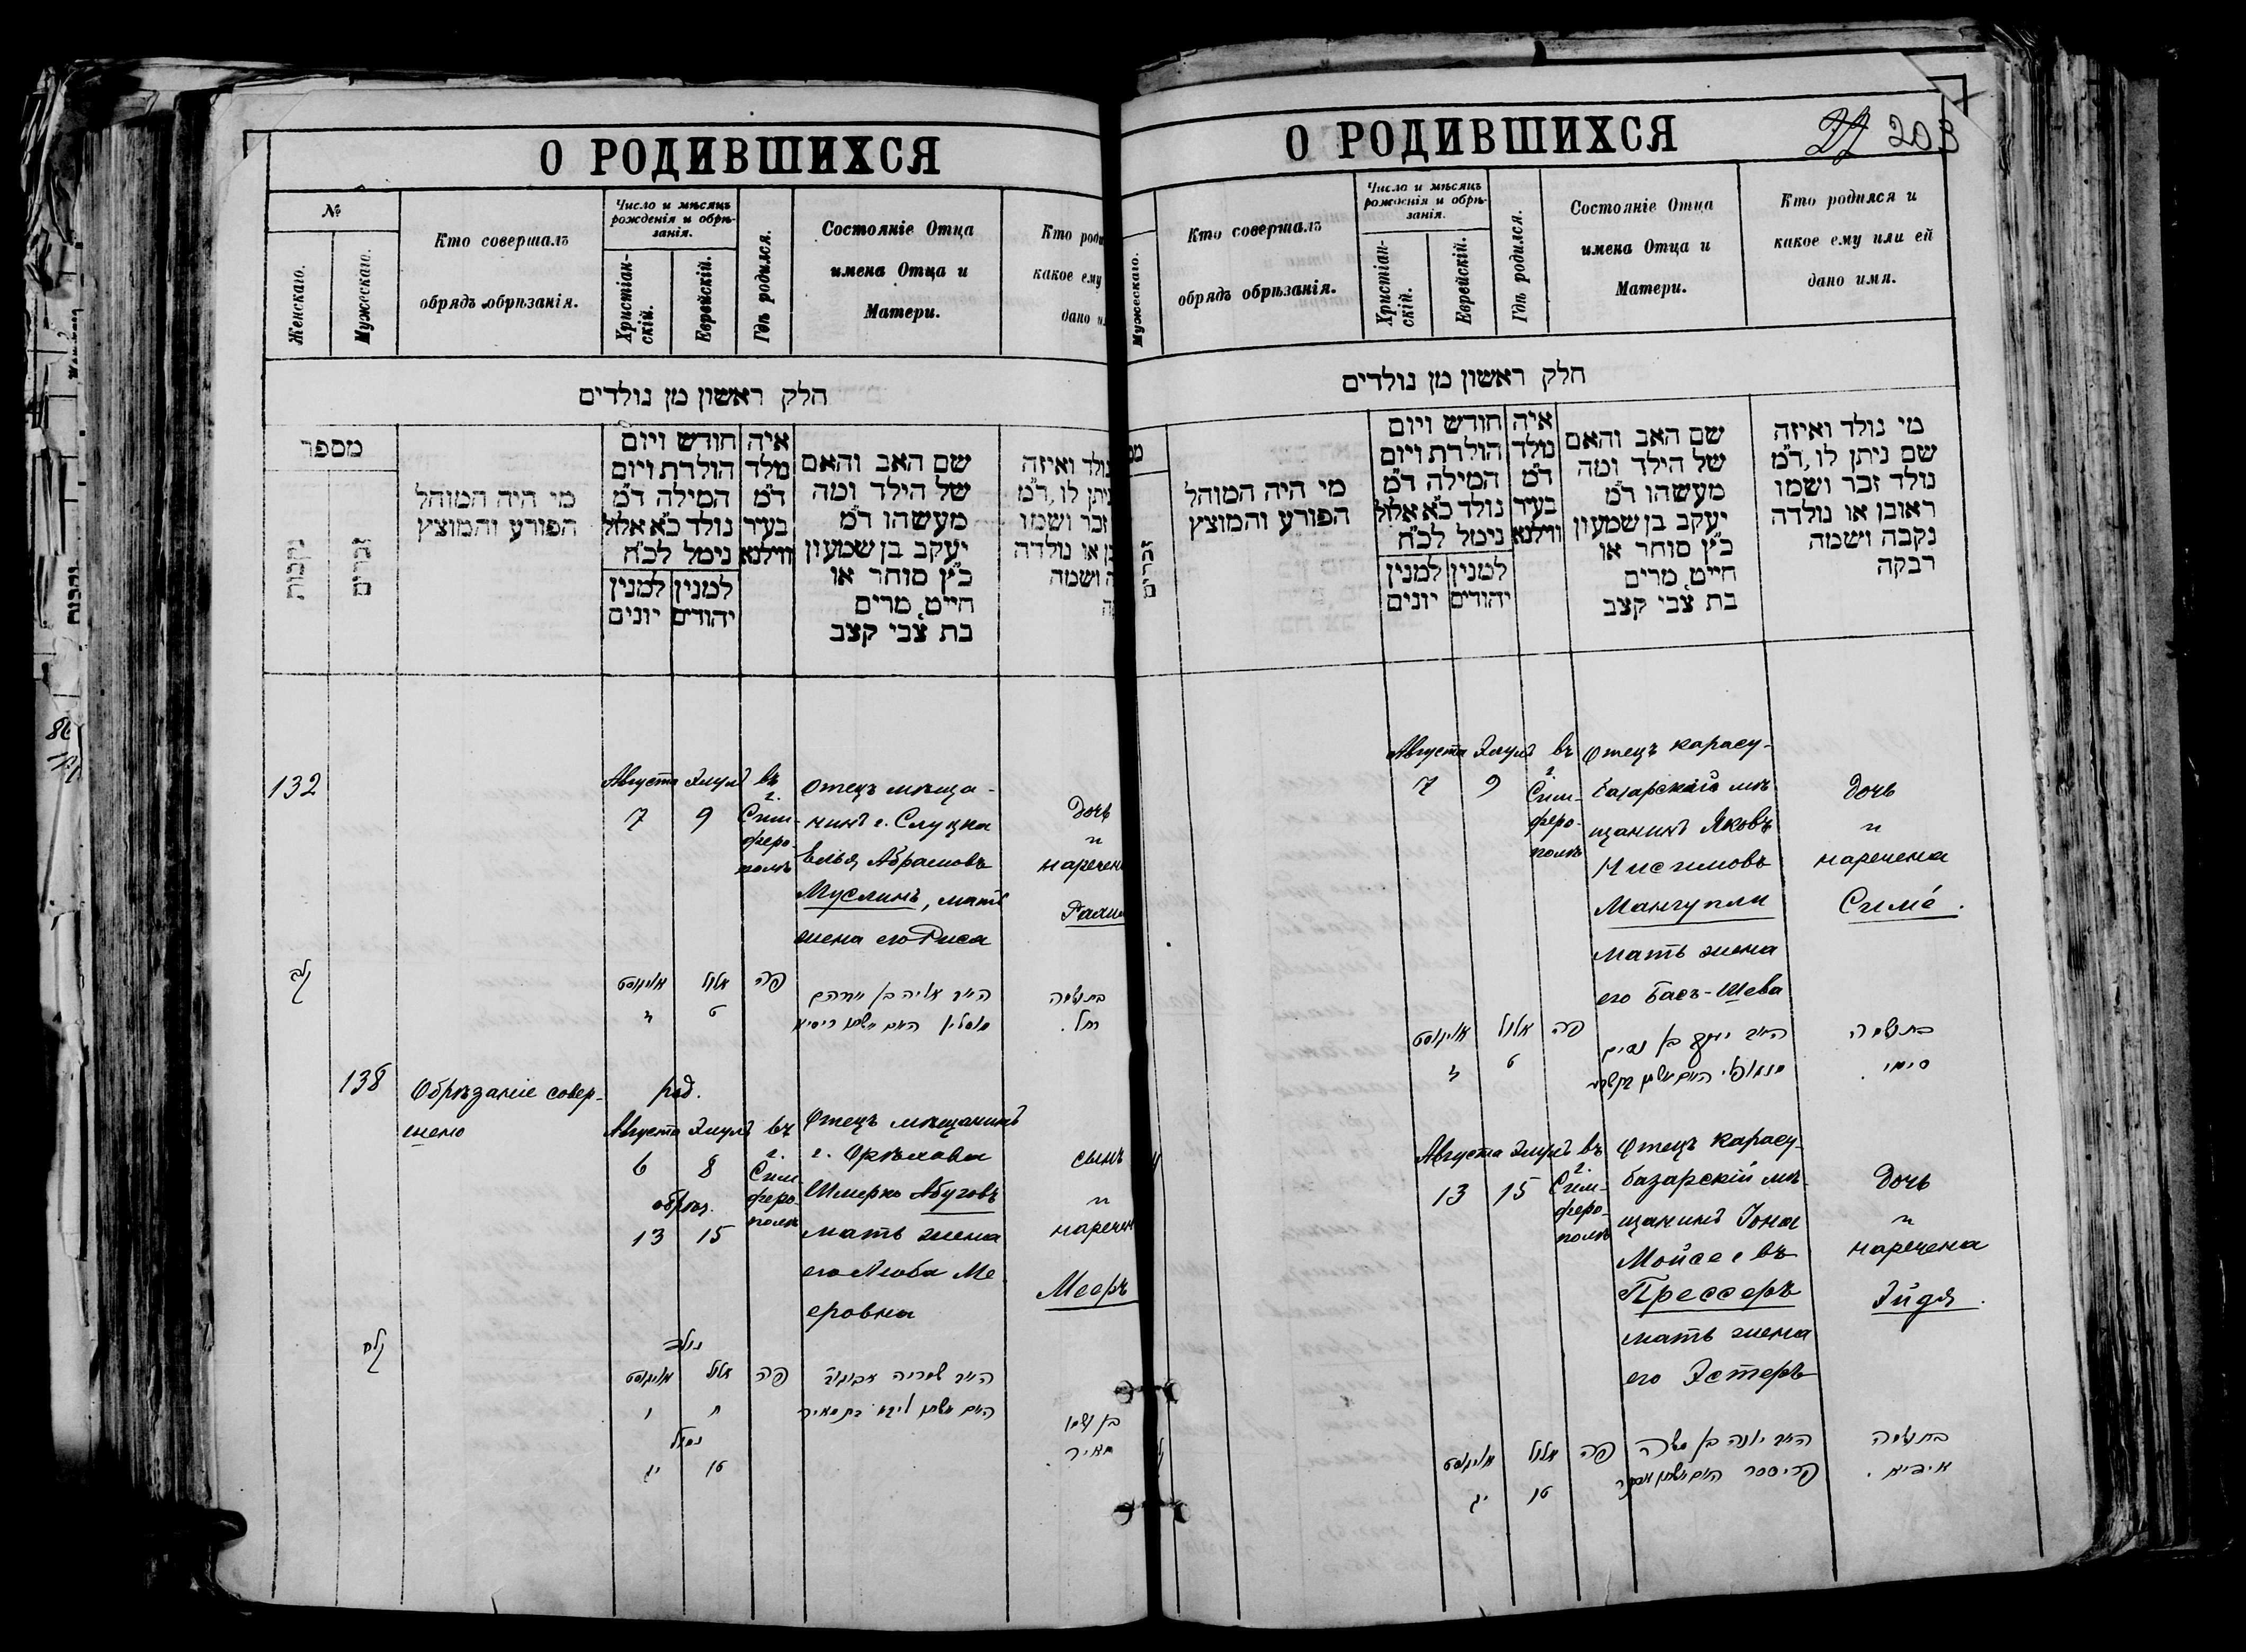 О РОДИВШИХСЯ
№
Женскаго.
Мужескаго.
Кто совершалъ
обрядъ обрѣзанія.
Число и мѣсяцъ
рожденія и обрѣ-
занія.
Христіан-
скій.
Еврейскій.
Гдѣ родился.
Состояніе Отца
имена Отца и
Матери.
Кто
какое ему
дано
חלק ראשון מן נולדים
מספר
נקבות
זכרים
מי היה המוהל
הפורע והמוצץ
חודש ויום
הולדת ויום
המילה ד״מ
נולד כ״א אלול
נימל לכ״ח
למנין יהודים
למנין יונים
איה
נולד
ד״מ
בעיר
ווילנא
שם האב והאם
של הילד ומה
מעשהו ד״מ
יעקב בן שמעון
כ״ץ סוחר או
חייט, מרים
בת צבי קצב
נולד ואיזה
ניתן לו, ד״מ
זכר ושמו
או נולדה
ושמה
132
Августа
7
Элулъ
9
въ
г.
Сим-
феро-
полѣ
Отецъ мѣща-
нинъ г. Слуцка
Елья Абрамовъ
Муслинъ, мать
жена его Риса
Дочь
и
наречен
קלב
אויגוסט
ז
אלול
ט
פה
האב אליה בן אברהם
מוסלין האם אשתו ריסיא
בת ושמה
רחל.
138
Обрѣзаніе совер-
шено
род.
Августа
6
Элулъ
8
обрѣз.
13 15
въ
г.
Сим-
феро-
полѣ
Отецъ мѣщанинъ
г. Орѣхова
Шмерко Абуговъ
мать жена
его Люба Ме-
еровна
сынъ
и
наречен
Мееръ
קלח
נולד
אויגוסט
ו
אלול
ח
נמול
יג טו
פה
האב שמריה אבוגוב
האם אשתו ליבא בת מאיר
בן ושמו
מאיר
О РОДИВШИХСЯ
203
Мужескаго.
Кто совершалъ
обрядъ обрѣзанія.
Число и мѣсяцъ
рожденія и обрѣ-
занія.
Христіан-
скій.
Еврейскій.
Гдѣ родился.
Состояніе Отца
имена Отца и
Матери.
Кто родился и
какое ему или ей
дано имя.
חלק ראשון מן נולדים
זכרים
מי היה המוהל
הפורע והמוצץ
חודש ויום
הולדת ויום
המילה ד״מ
נולד כ״א אלול
נימל לכ״ח
למנין יהודים
למנין יונים
איה
נולד
ד״מ
בעיר
ווילנא
שם האב והאם
של הילד ומה
מעשהו ד״מ
יעקב בן שמעון
כ״ץ סוחר או
חייט, מרים
בת צבי קצב
מי נולד ואיזה
שם ניתן לו, ד״מ
נולד זכר ושמו
ראובן או נולדה
נקבה ושמה
רבקה
Августа
7
Элулъ
9
въ
г.
Сим-
феро-
полѣ
Отецъ Карасу-
базарскій мѣ-
щанинъ Яковъ
Нисимовъ
Мангупли
мать жена
его Басъ-Шева
Дочь
и
наречена
Симе.
אויגוסט
ז
אלול
ט
פה
האב יעקב בן נסים
מנגופלי האם אשתו בת שבע
בת ושמה
סימי.
Августа
13
Элулъ
15
въ
г.
Сим-
феро-
полѣ
Отецъ Карасу-
базарскій мѣ-
щанинъ Іона
Мойсеевъ
Прессеръ
мать жена
его Эстеръ
Дочь
и
наречена
Эйдя.
אויגוסט
יג
אלול
טו
פה
האב יונה בן משה
פריססר האם אשתו אסתר
בת ושמה